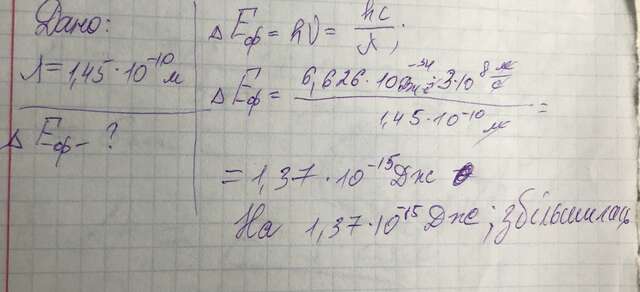 Дано:
λ=1,45·10⁻¹⁰м
ΔEф-?
ΔEф = hν = hc/λ;
ΔEф = 6,626·10⁻³⁴Дж·с·3·10⁸ м/с / 1,45·10⁻¹⁰ м =
= 1,37·10⁻¹⁵Дж
На 1,37·10⁻¹⁵Дж; збільшилась